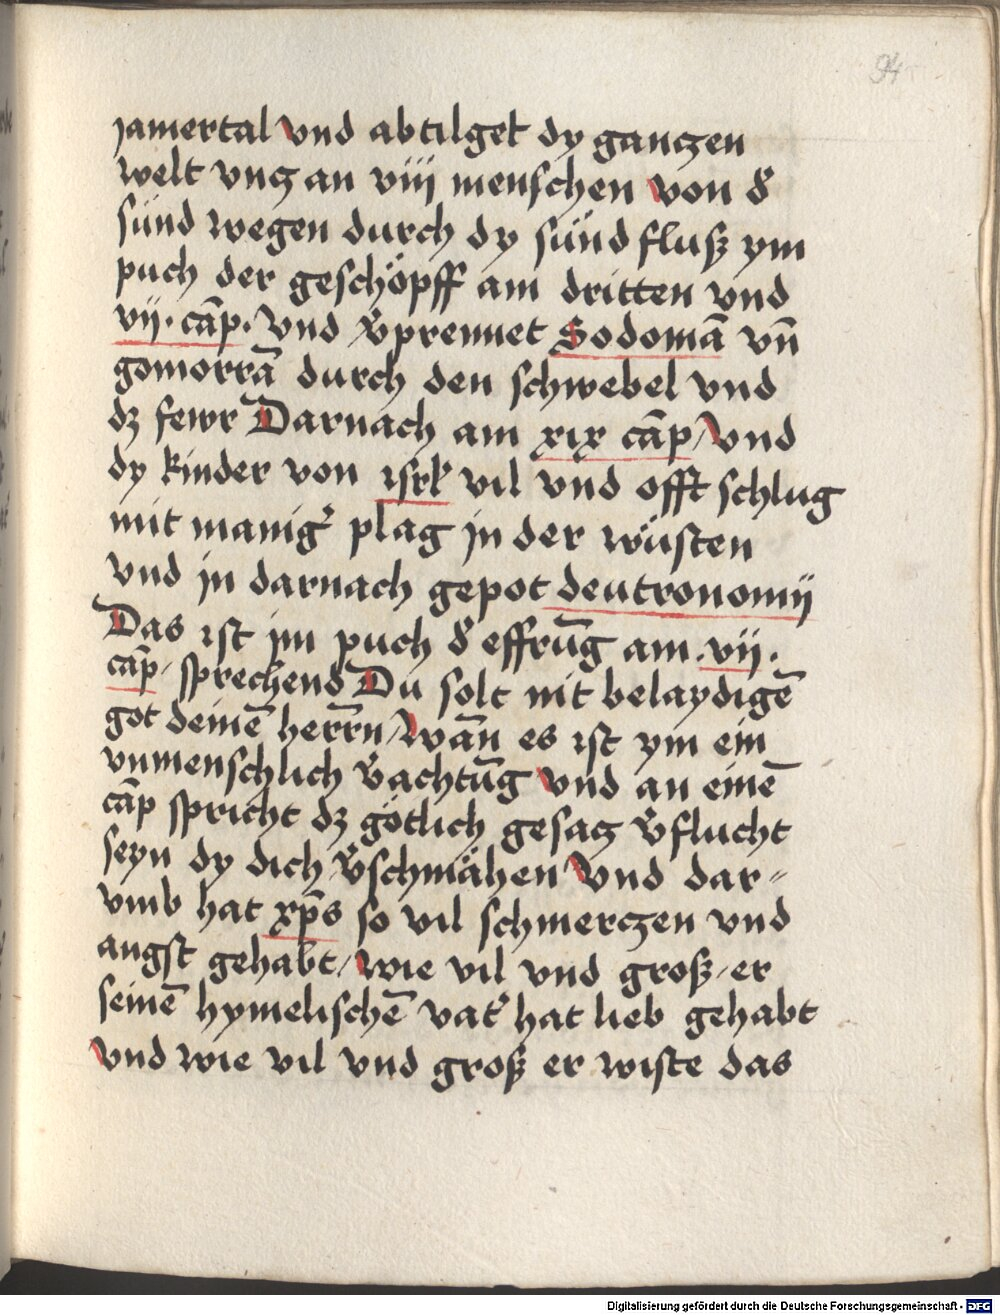 94
jamertal vnd abtilget dy ganczen
welt vncz an viii menschen von d͛
sünd wegen durch dy sündfluß ym
puch der geschöpff am dritten vnd
vij · cāp · vnd v͛prennet Sodomā vn̄
gomorrā durch den schwebel vnd
dz fewr Darnach am xix cāp / vnd
dy kinder von isrl̄ vil vnd offt schlug
mit manig͛ plag jn der wüsten
vnd jn darnach gepot deutronomij
Das ist jm puch d͛ effrūg am · vij ·
cāp / sprechēnd Du solt nit belaydigē
got deinē herrn̄ / wān es ist ym ein
vnmenschlich v͛achtūg vnd an einē
cāp spricht dz götlich gesacz v͛flucht
seyn dy dich v͛schmähen vnd dar-
vmb hat xp̄s so vil schmerczen vnd
angst gehabt / wie vil vnd groß / er
seinē hymelischē vat͛ hat lieb gehabt
vnd wie vil vnd groß er wiste das
Digitalisierung gefördert durch die Deutsche Forschungsgemeinschaft - DFG